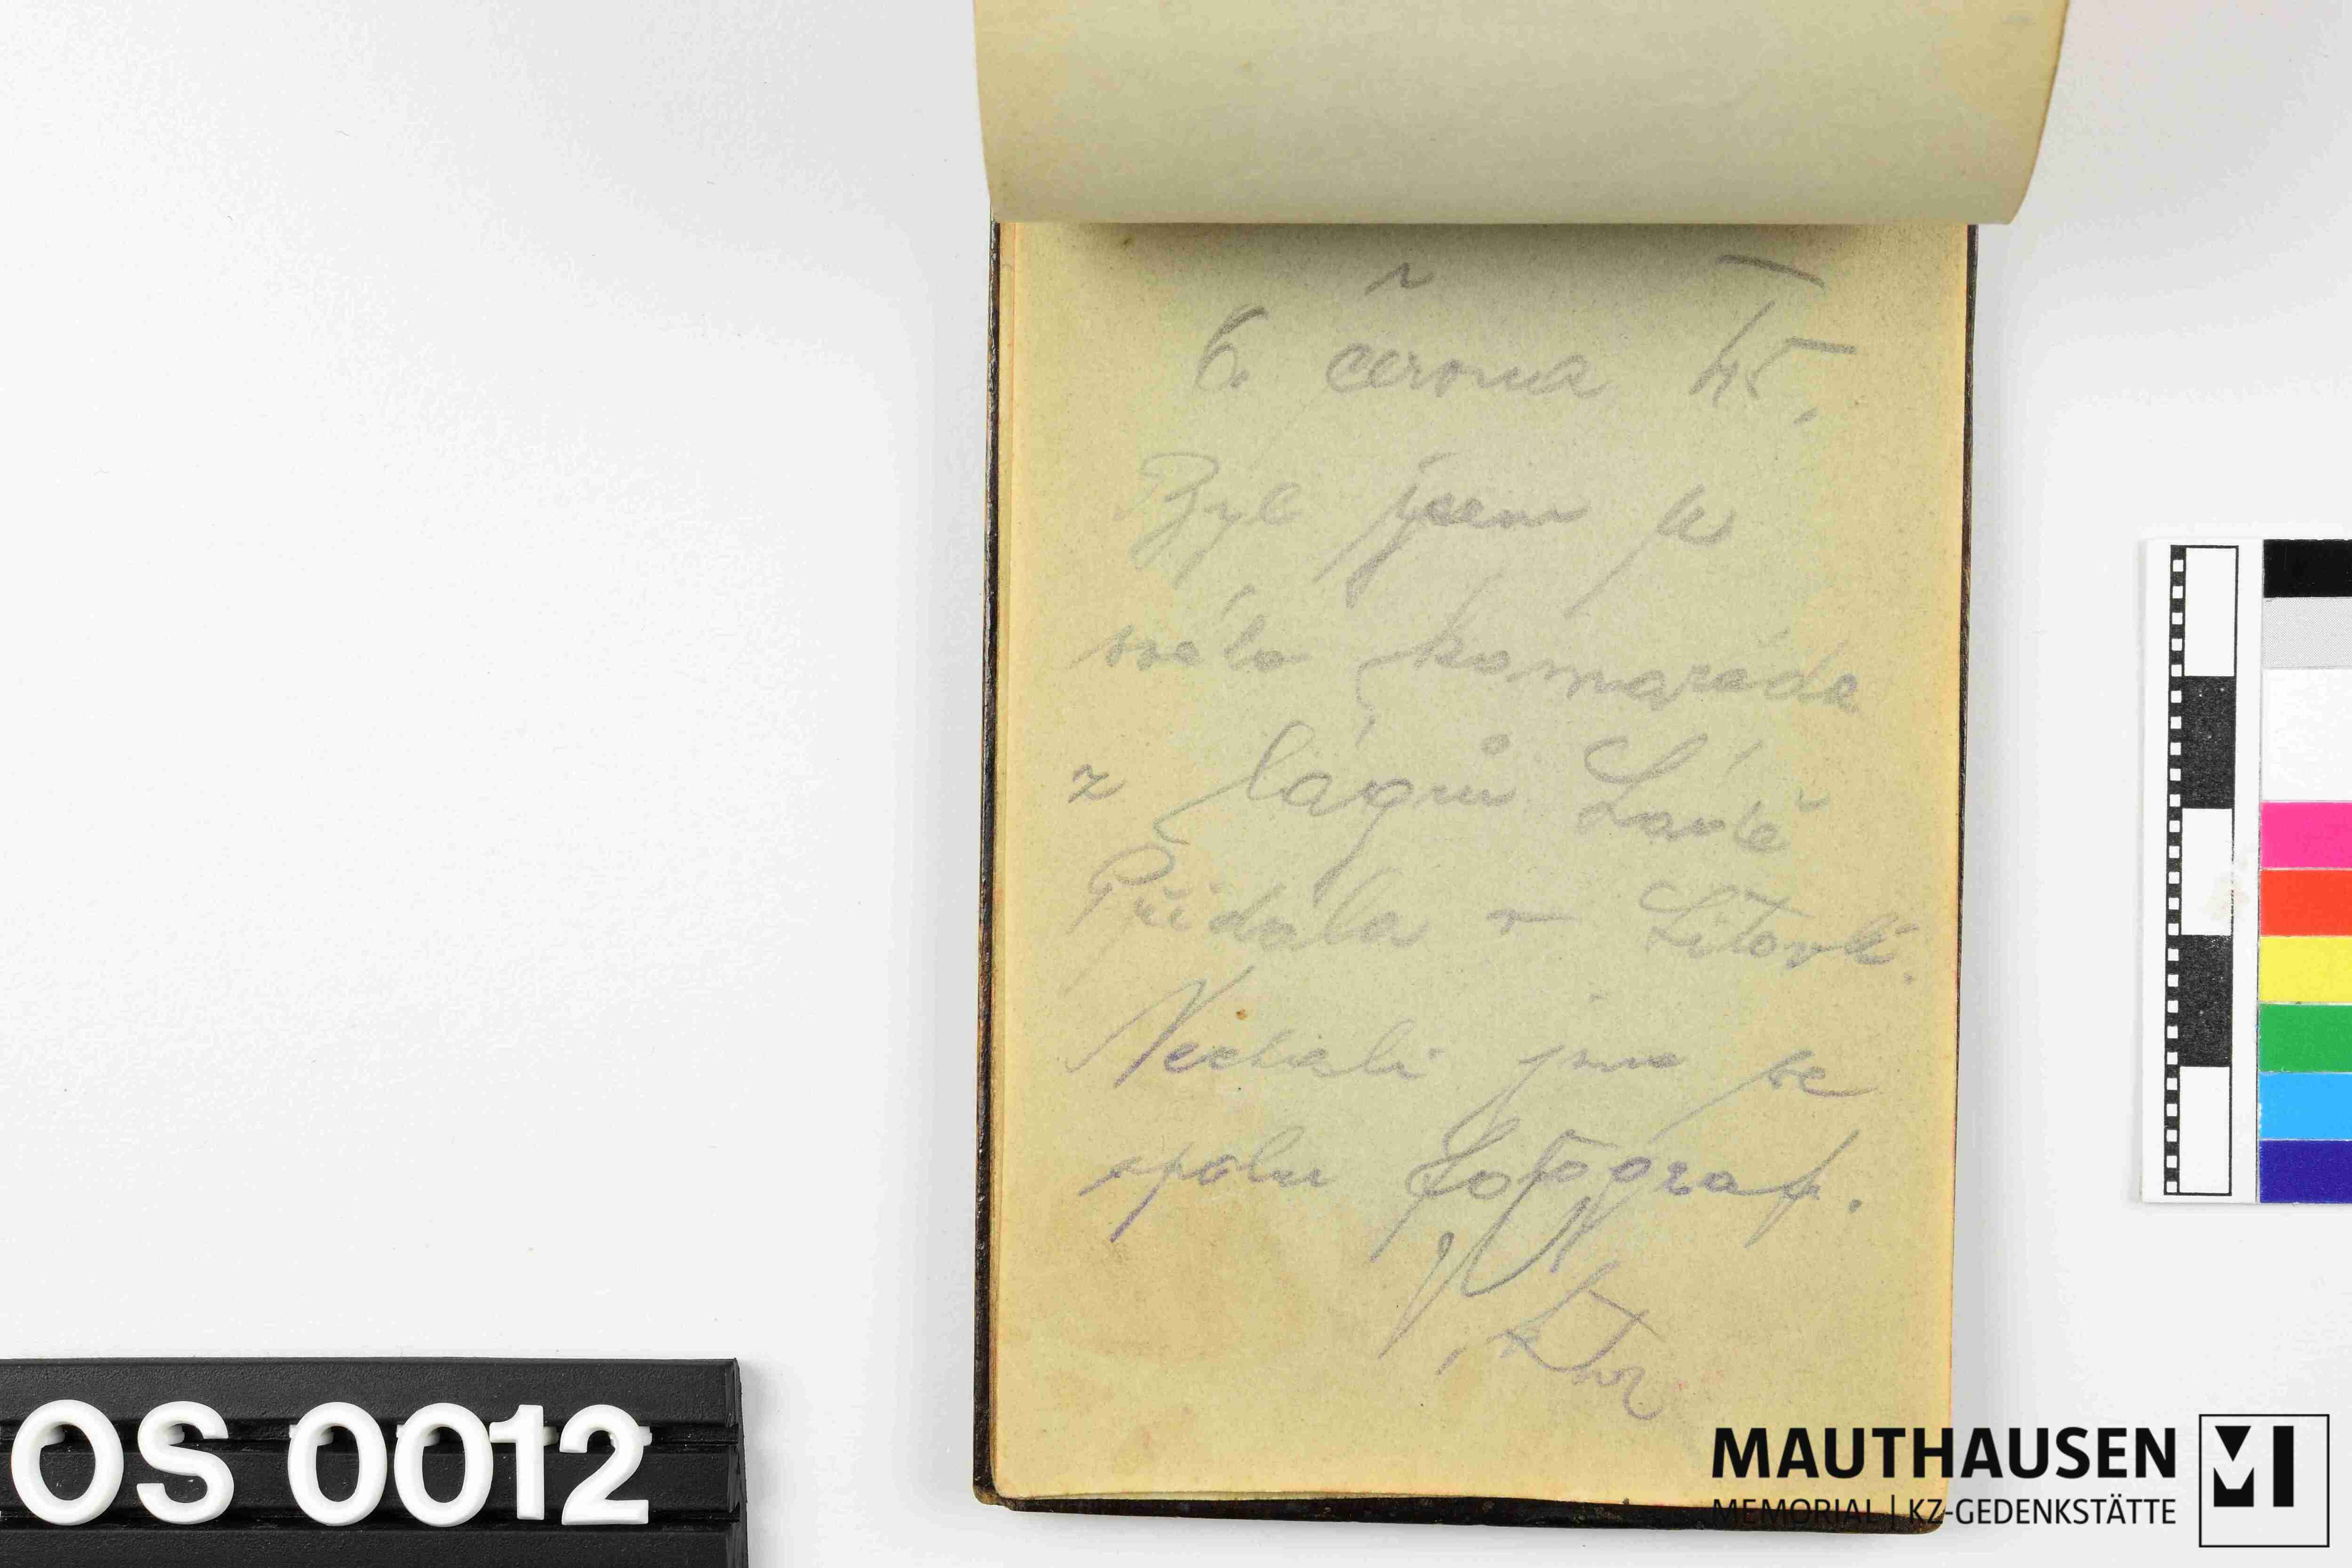 6. června 45.
Byl jsem u
svého kamaráda
z lágrů Lávě
Přidala v Litovli.
Nechali jsme se
spolu fotograf.
OS 0012
MAUTHAUSEN
MEMORIAL | KZ-GEDENKSTÄTTE